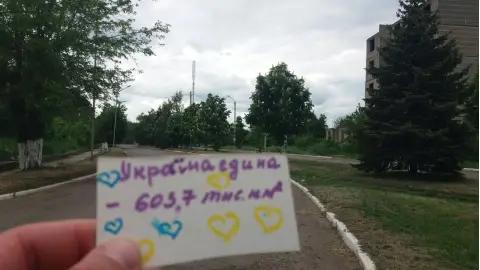 Україна єдина
- 603,7 тис. км²